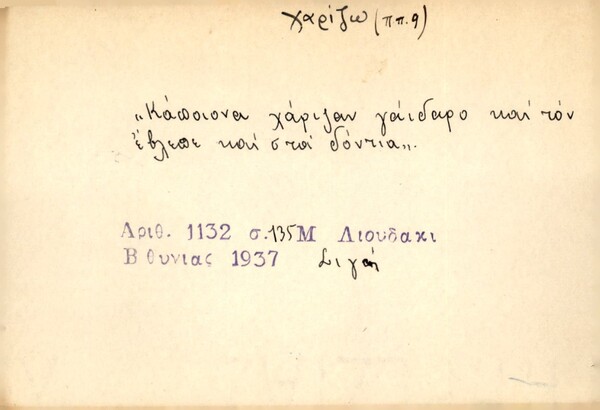 χαρίζω (ππ. 9)
„Κάποιονα χάριζαν γάιδαρο καί τόν
ἔβλεπε καί στά δόντια„.
Αριθ. 1132 σ. 135 Μ Λιουδακι
Β θυνιας 1937 Σιγή